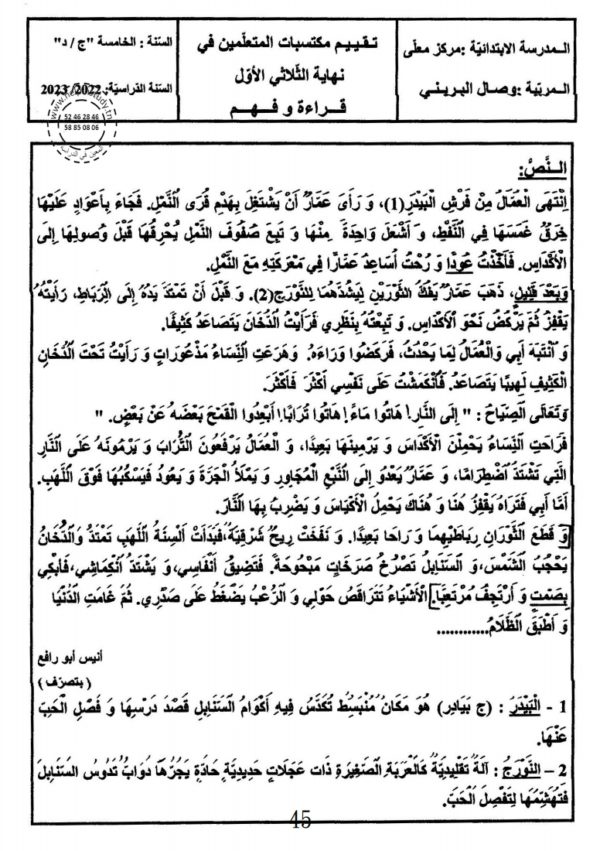 المدرسة الابتدائيّة :مركز معلّى
المربّية :وصال البريني
تقييم مكتسبات المتعلّمين في
نهاية الثّلاثي الأوّل
قراءة و فهم
السّنة : الخامسة "ج / د"
السّنة الدّراسيّة: 2022/ 2023
52 46 28 46
58 85 08 06
النَّصُّ:
اِنْتَهَى الْعُمَّالُ مِنْ فَرْشِ الْبَيْدَرِ(1)، وَ رَأَى عَمَّارٌ أَنْ يَشْتَغِلَ بِهَدْمِ قُرَى النَّمْلِ. فَجَاءَ بِأَعْوَادٍ عَلَيْهَا
خِرَقٌ غَمَسَهَا فِي النَّفْطِ، وَ أَشْعَلَ وَاحِدَةً مِنْهَا وَ تَبِعَ صُفُوفَ النَّمْلِ يُحْرِقُهَا قَبْلَ وُصُولِهَا إِلَى
الْأَكْدَاسِ. فَأَخَذْتُ عُودًا وَ رُحْتُ أُسَاعِدُ عَمَّارًا فِي مَعْرَكَتِهِ مَعَ النَّمْلِ.
وَبَعْدَ قَلِيلٍ، ذَهَبَ عَمَّارٌ يَفُكُّ الثَّوْرَيْنِ لِيَشُدَّهُمَا لِلنَّوْرَجِ(2). وَ قَبْلَ أَنْ تَمْتَدَّ يَدُهُ إِلَى الرِّبَاطِ، رَأَيْتُهُ
يَقْفِزُ ثُمَّ يَرْكُضُ نَحْوَ الْأَكْدَاسِ. وَ تَبِعْتُهُ بِنَظَرِي فَرَأَيْتُ الدُّخَانَ يَتَصَاعَدُ كَثِيفًا.
وَ انْتَبَهَ أَبِي وَالْعُمَّالُ لِمَا يَحْدُثُ، فَرَكَضُوا وَرَاءَهُ. وَهَرَعَتِ النِّسَاءُ مَذْعُورَاتٍ وَ رَأَيْتُ تَحْتَ الدُّخَانِ
الْكَثِيفِ لَهِيبًا يَتَصَاعَدُ. فَانْكَمَشْتُ عَلَى نَفْسِي أَكْثَرَ فَأَكْثَرَ.
وَتَعَالَى الصِّيَاحُ : " إِلَى النَّارِ! هَاتُوا مَاءً! هَاتُوا تُرَابًا! أَبْعِدُوا الْقَمْحَ بَعْضَهُ عَنْ بَعْضٍ. "
فَرَاحَتِ النِّسَاءُ يَحْمِلْنَ الْأَكْدَاسَ وَ يَرْمِينَهَا بَعِيدًا، وَ الْعُمَّالُ يَرْفَعُونَ التُّرَابَ وَ يَرْمُونَهُ عَلَى النَّارِ
الَّتِي تَشْتَدُّ اضْطِرَامًا، وَ عَمَّارٌ يَعْدُو إِلَى النَّبْعِ الْمُجَاوِرِ وَ يَمْلَأُ الْجَرَّةَ وَ يَعُودُ فَيَسْكُبُهَا فَوْقَ اللَّهَبِ.
أَمَّا أَبِي فَتَرَاهُ يَقْفِزُ هُنَا وَ هُنَاكَ يَحْمِلُ الْأَكْيَاسَ وَ يَضْرِبُ بِهَا النَّارَ.
وَ قَطَعَ الثَّوْرَانِ رِبَاطَيْهِمَا وَ رَاحَا بَعِيدًا. وَ نَفَخَتْ رِيحٌ شَرْقِيَّةٌ،فَبَدَأَتْ أَلْسِنَةُ اللَّهَبِ تَمْتَدُّ وَالدُّخَانُ
يَحْجُبُ الشَّمْسَ، وَ السَّنَابِلُ تَصْرُخُ صَرَخَاتٍ مَبْحُوحَةً. فَتَضِيقُ أَنْفَاسِي، وَ يَشْتَدُّ انْكِمَاشِي،فَأَبْكِي
بِصَمْتٍ وَ أَرْتَجِفُ مُرْتَعِبًا. الْأَشْيَاءُ تَتَرَاقَصُ حَوْلِي وَ الرُّعْبُ يَضْغَطُ عَلَى صَدْرِي. ثُمَّ غَامَتِ الدُّنْيَا
وَ أَطْبَقَ الظَّلَامُ............
أنيس أبو رافع
( بتصرّف )
1 - الْبَيْدَرُ : (ج بَيَادِر) هُوَ مَكَانٌ مُنْبَسِطٌ تُكَدَّسُ فِيهِ أَكْوَامُ السَّنَابِلِ قَصْدَ دَرْسِهَا وَ فَصْلِ الْحَبِّ
عَنْهَا.
2 – النَّوْرَجُ : آلَةٌ تَقْلِيدِيَّةٌ كَالْعَرَبَةِ الصَّغِيرَةِ ذَاتُ عَجَلَاتٍ حَدِيدِيَّةٍ حَادَّةٍ يَجُرُّهَا دَوَابٌّ تَدُوسُ السَّنَابِلَ
فَتُهَشِّمُهَا لِتَفْصِلَ الْحَبَّ.
45